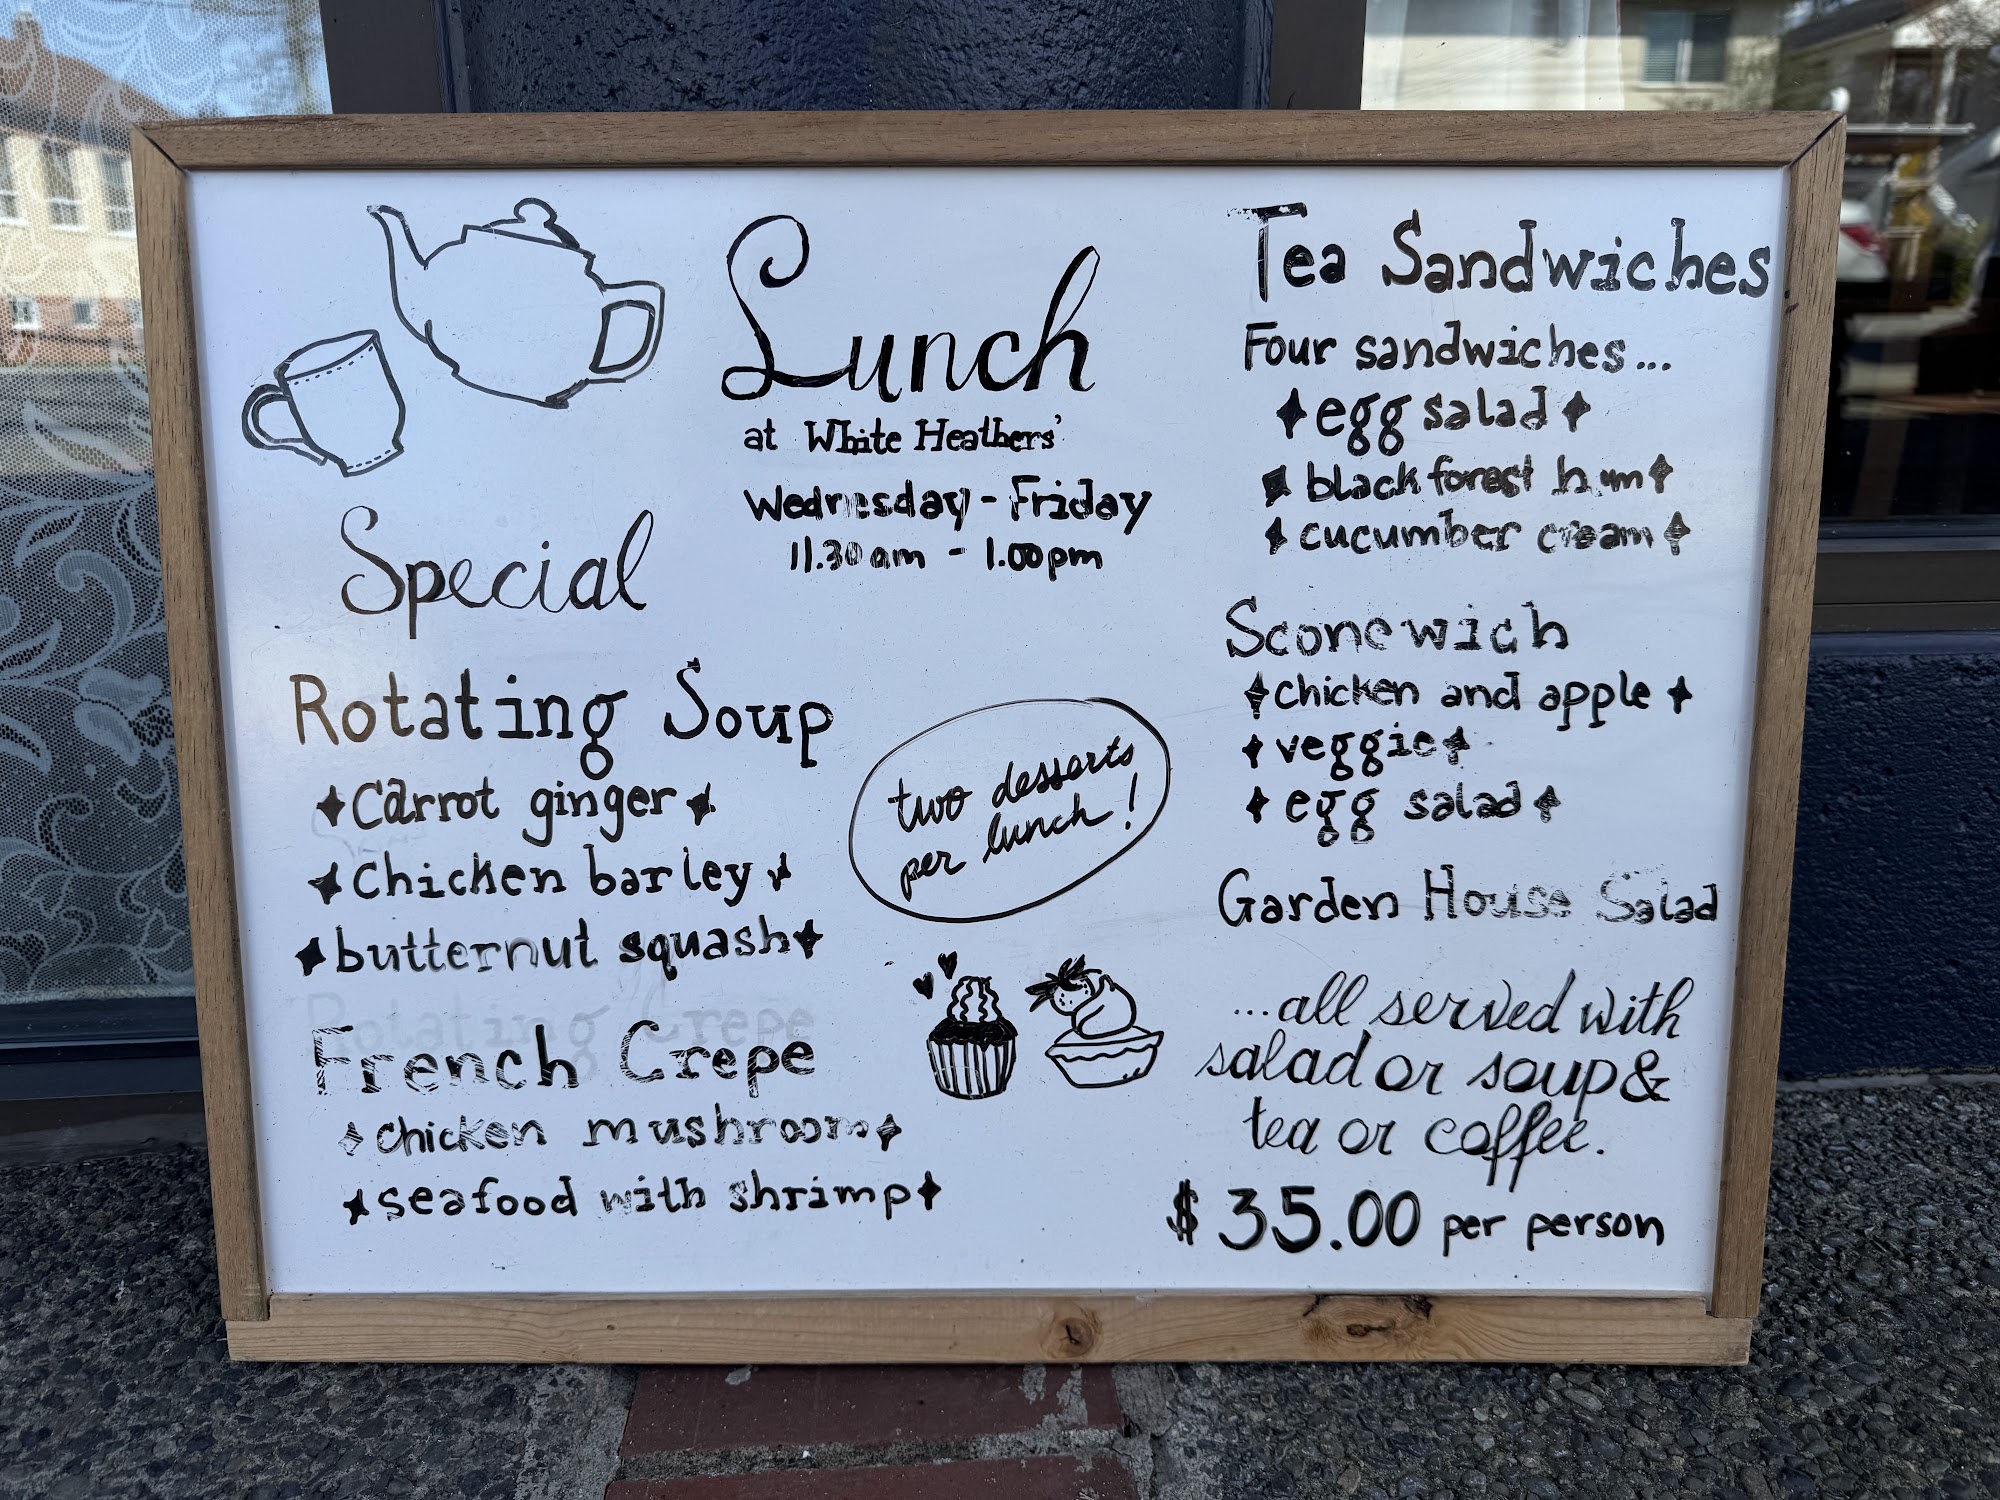 Lunch
at White Heathers'
Wednesday - Friday
11.30am - 1.00pm
Special
Rotating Soup
Carrot ginger
Chicken barley
butternut squash
Rotating Crepe
French Crepe
chicken mushroom
seafood with shrimp
two desserts
per lunch!
Tea Sandwiches
Four sandwiches...
egg salad
black forest ham
cucumber cream
Sconewich
chicken and apple
veggie
egg salad
Garden House Salad
...all served with
salad or soup &
tea or coffee.
$35.00 per person